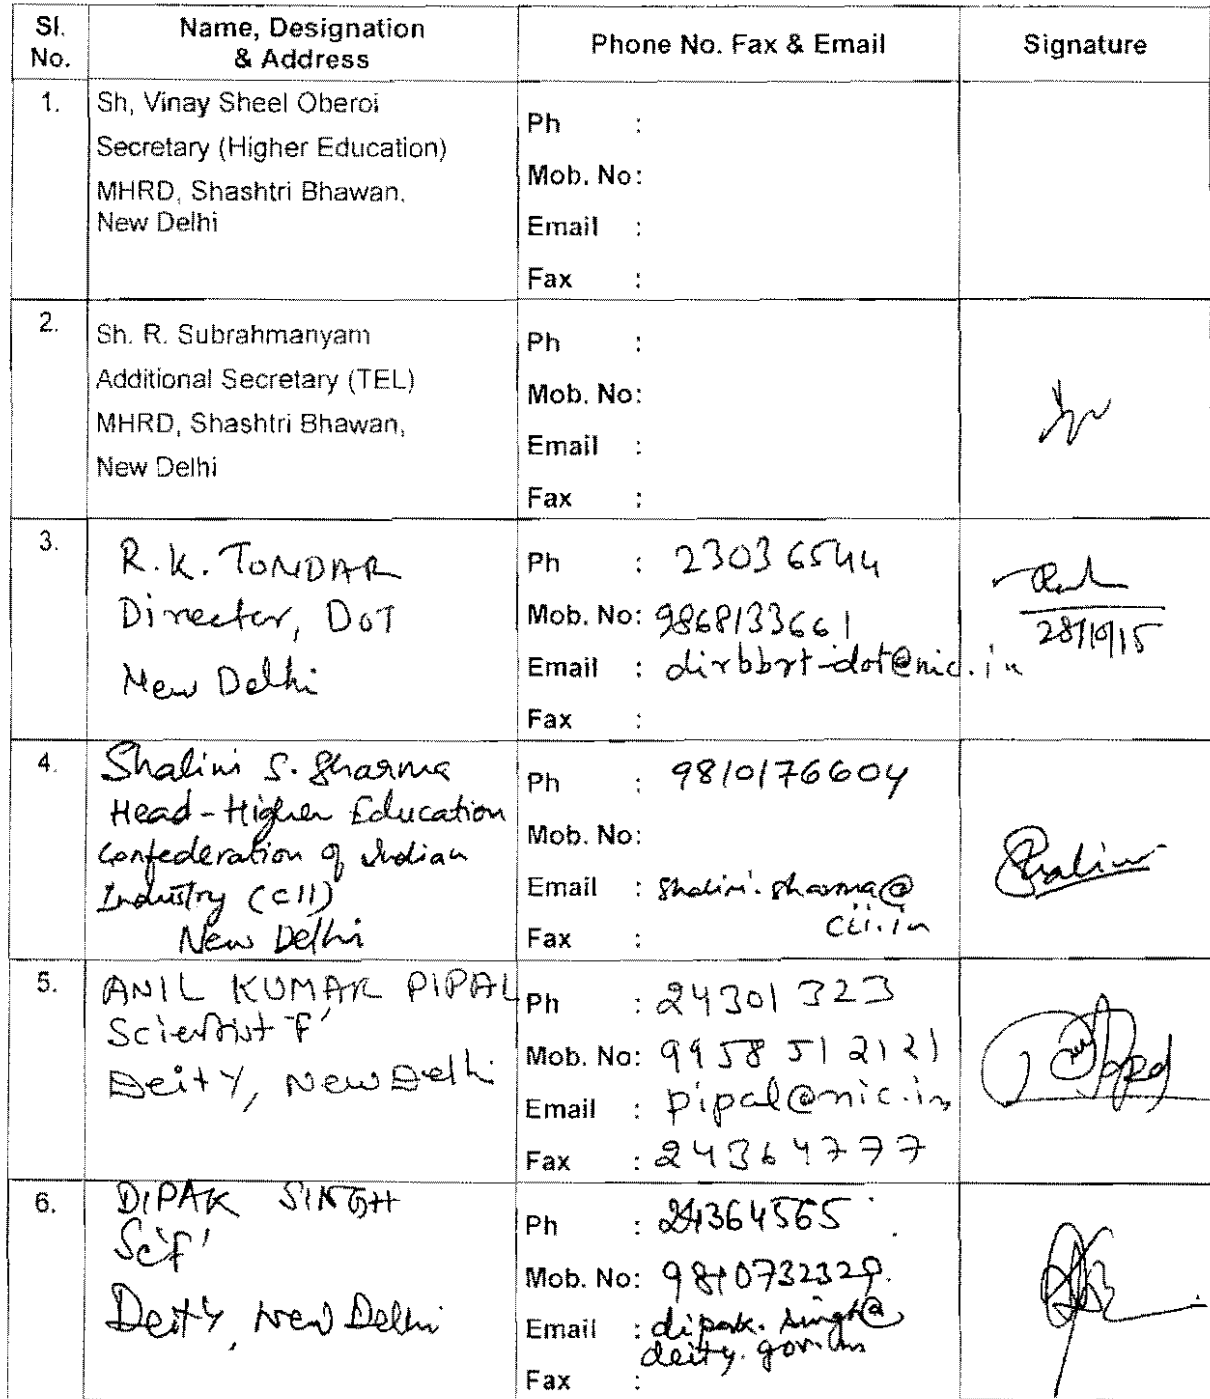 Sl. No.
Name, Designation & Address
Phone No. Fax & Email
Signature
1.
Sh, Vinay Sheel Oberoi
Secretary (Higher Education)
MHRD, Shashtri Bhawan,
New Delhi
Ph :
Mob. No:
Email :
Fax :
2.
Sh. R. Subrahmanyam
Additional Secretary (TEL)
MHRD, Shashtri Bhawan,
New Delhi
Ph :
Mob. No:
Email :
Fax :
3.
R.K. TONDAR
Director, DoT
New Delhi
Ph : 23036544
Mob. No: 9868133661
Email : dirbbrt-dot@nic.in
Fax :
28/10/15
4.
Shalini S. Sharma
Head-Higher Education
Confederation of Indian
Industry (CII)
New Delhi
Ph : 9810176604
Mob. No:
Email : shalini.sharma@
cii.in
Fax :
Shalini
5.
ANIL KUMAR PIPAL
Scientist 'F'
DeitY, New Delhi
Ph : 24301323
Mob. No: 9958512121
Email : pipal@nic.in
Fax : 24364777
6.
DIPAK SINGH
Sc'F'
DeitY, New Delhi
Ph : 24364565
Mob. No:
Email : dipak.singh@
deity.gov.in
Fax :